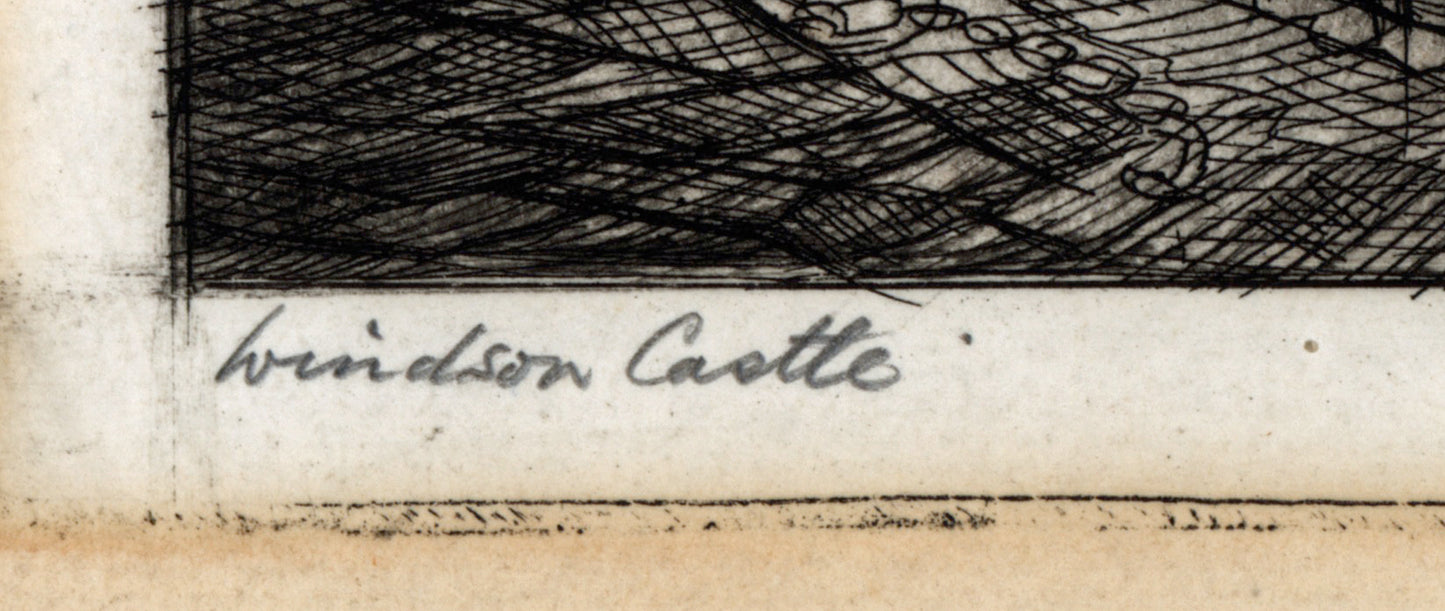 Windsor Castle